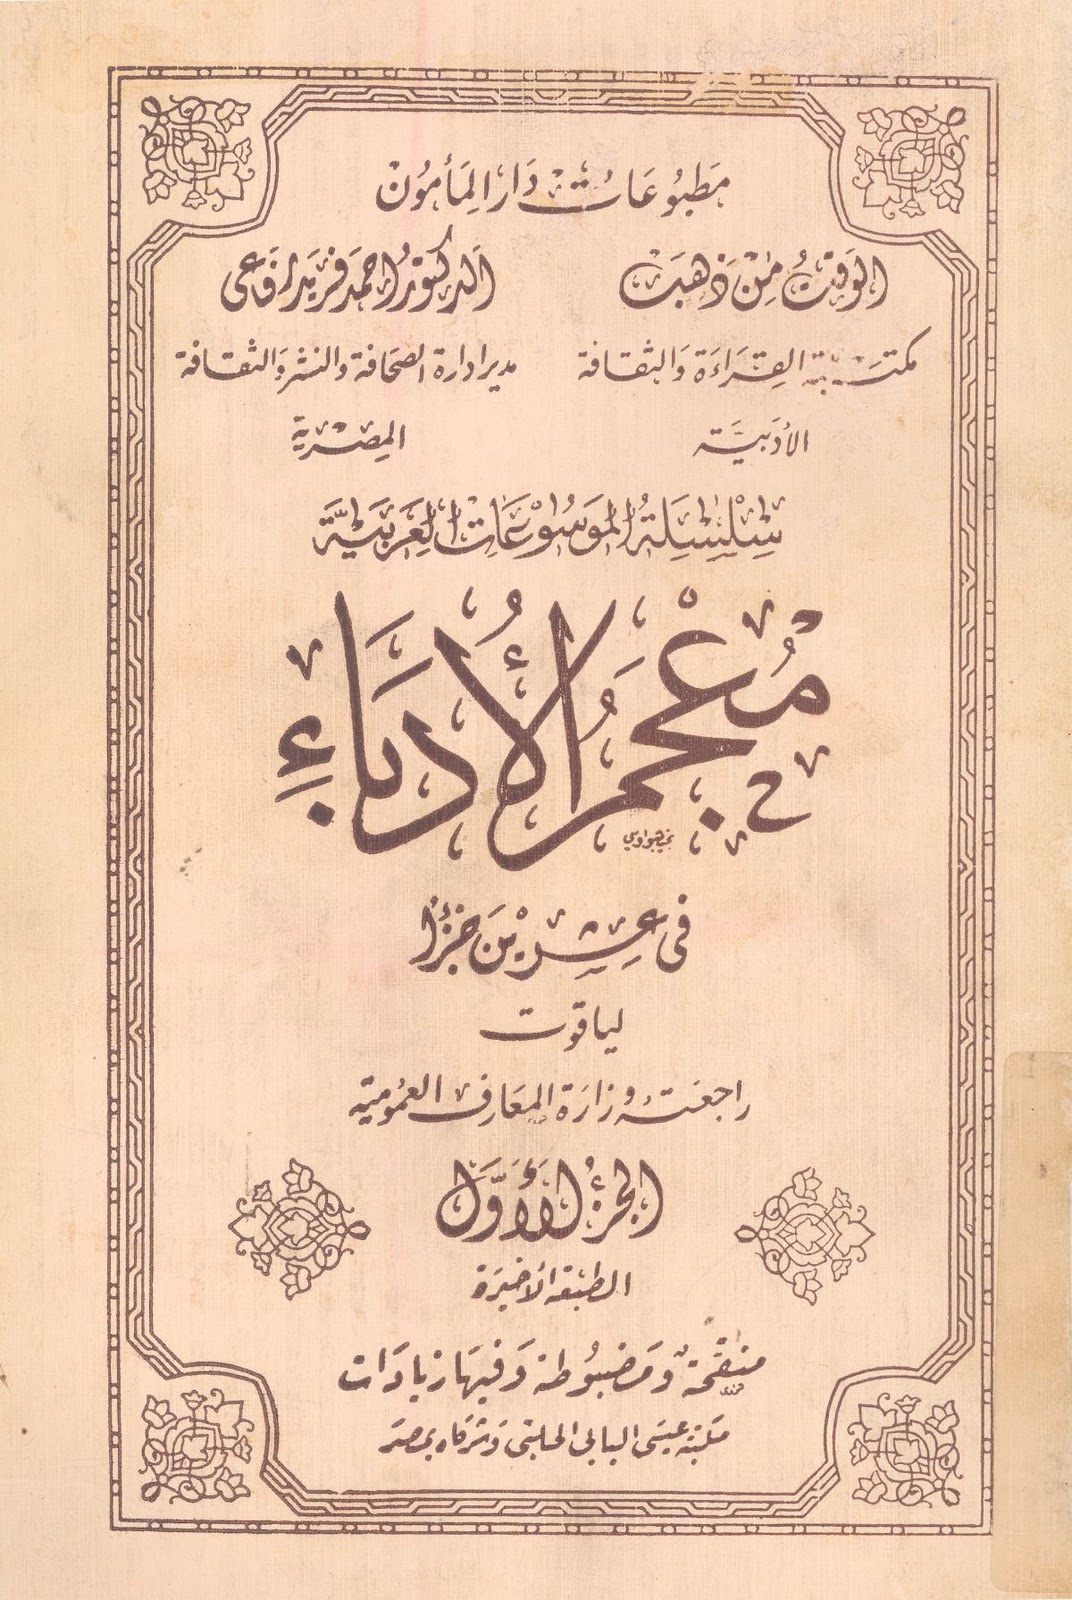 مَطبُوعَاتُ دَارِ المَأمُونْ
الوَقْتُ مِنْ ذَهَبْ
الدكتورُ احمَد فَريْد رفَاعى
مكتَبَة القِرَاءَة وَالثقافة
مدير ادارة الصحَافة والنشر وَالثقافة
الأدَبيَّة
المِصْريَة
سِلْسِلَةُ المَوسُوْعَاتِ العَرَبيَّة
مُعْجَمُ الأُدَبَاءِ
فى عِشرِيْنَ جُزْءًا
لياقوت
راجعَتهُ وزارَة المعَارفِ العُمُومية
الجُزءُ الأَوَّل
الطبعة الأخيرَة
منقحَة ومَضبُوطة وَفيهَا زيادَات
مَكتبة عيسَى البابى الحلبى وَشركاه بمصرَ